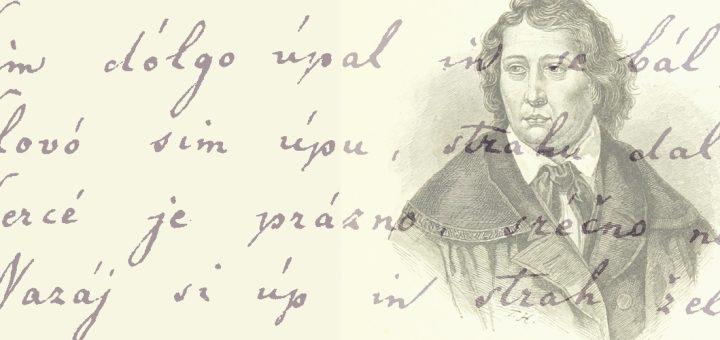 im dólgo úpal in se bál,
lovó sim úpu, strahu dal
ercé je prázno, sréčno n
Nazáj si úp in strah žel